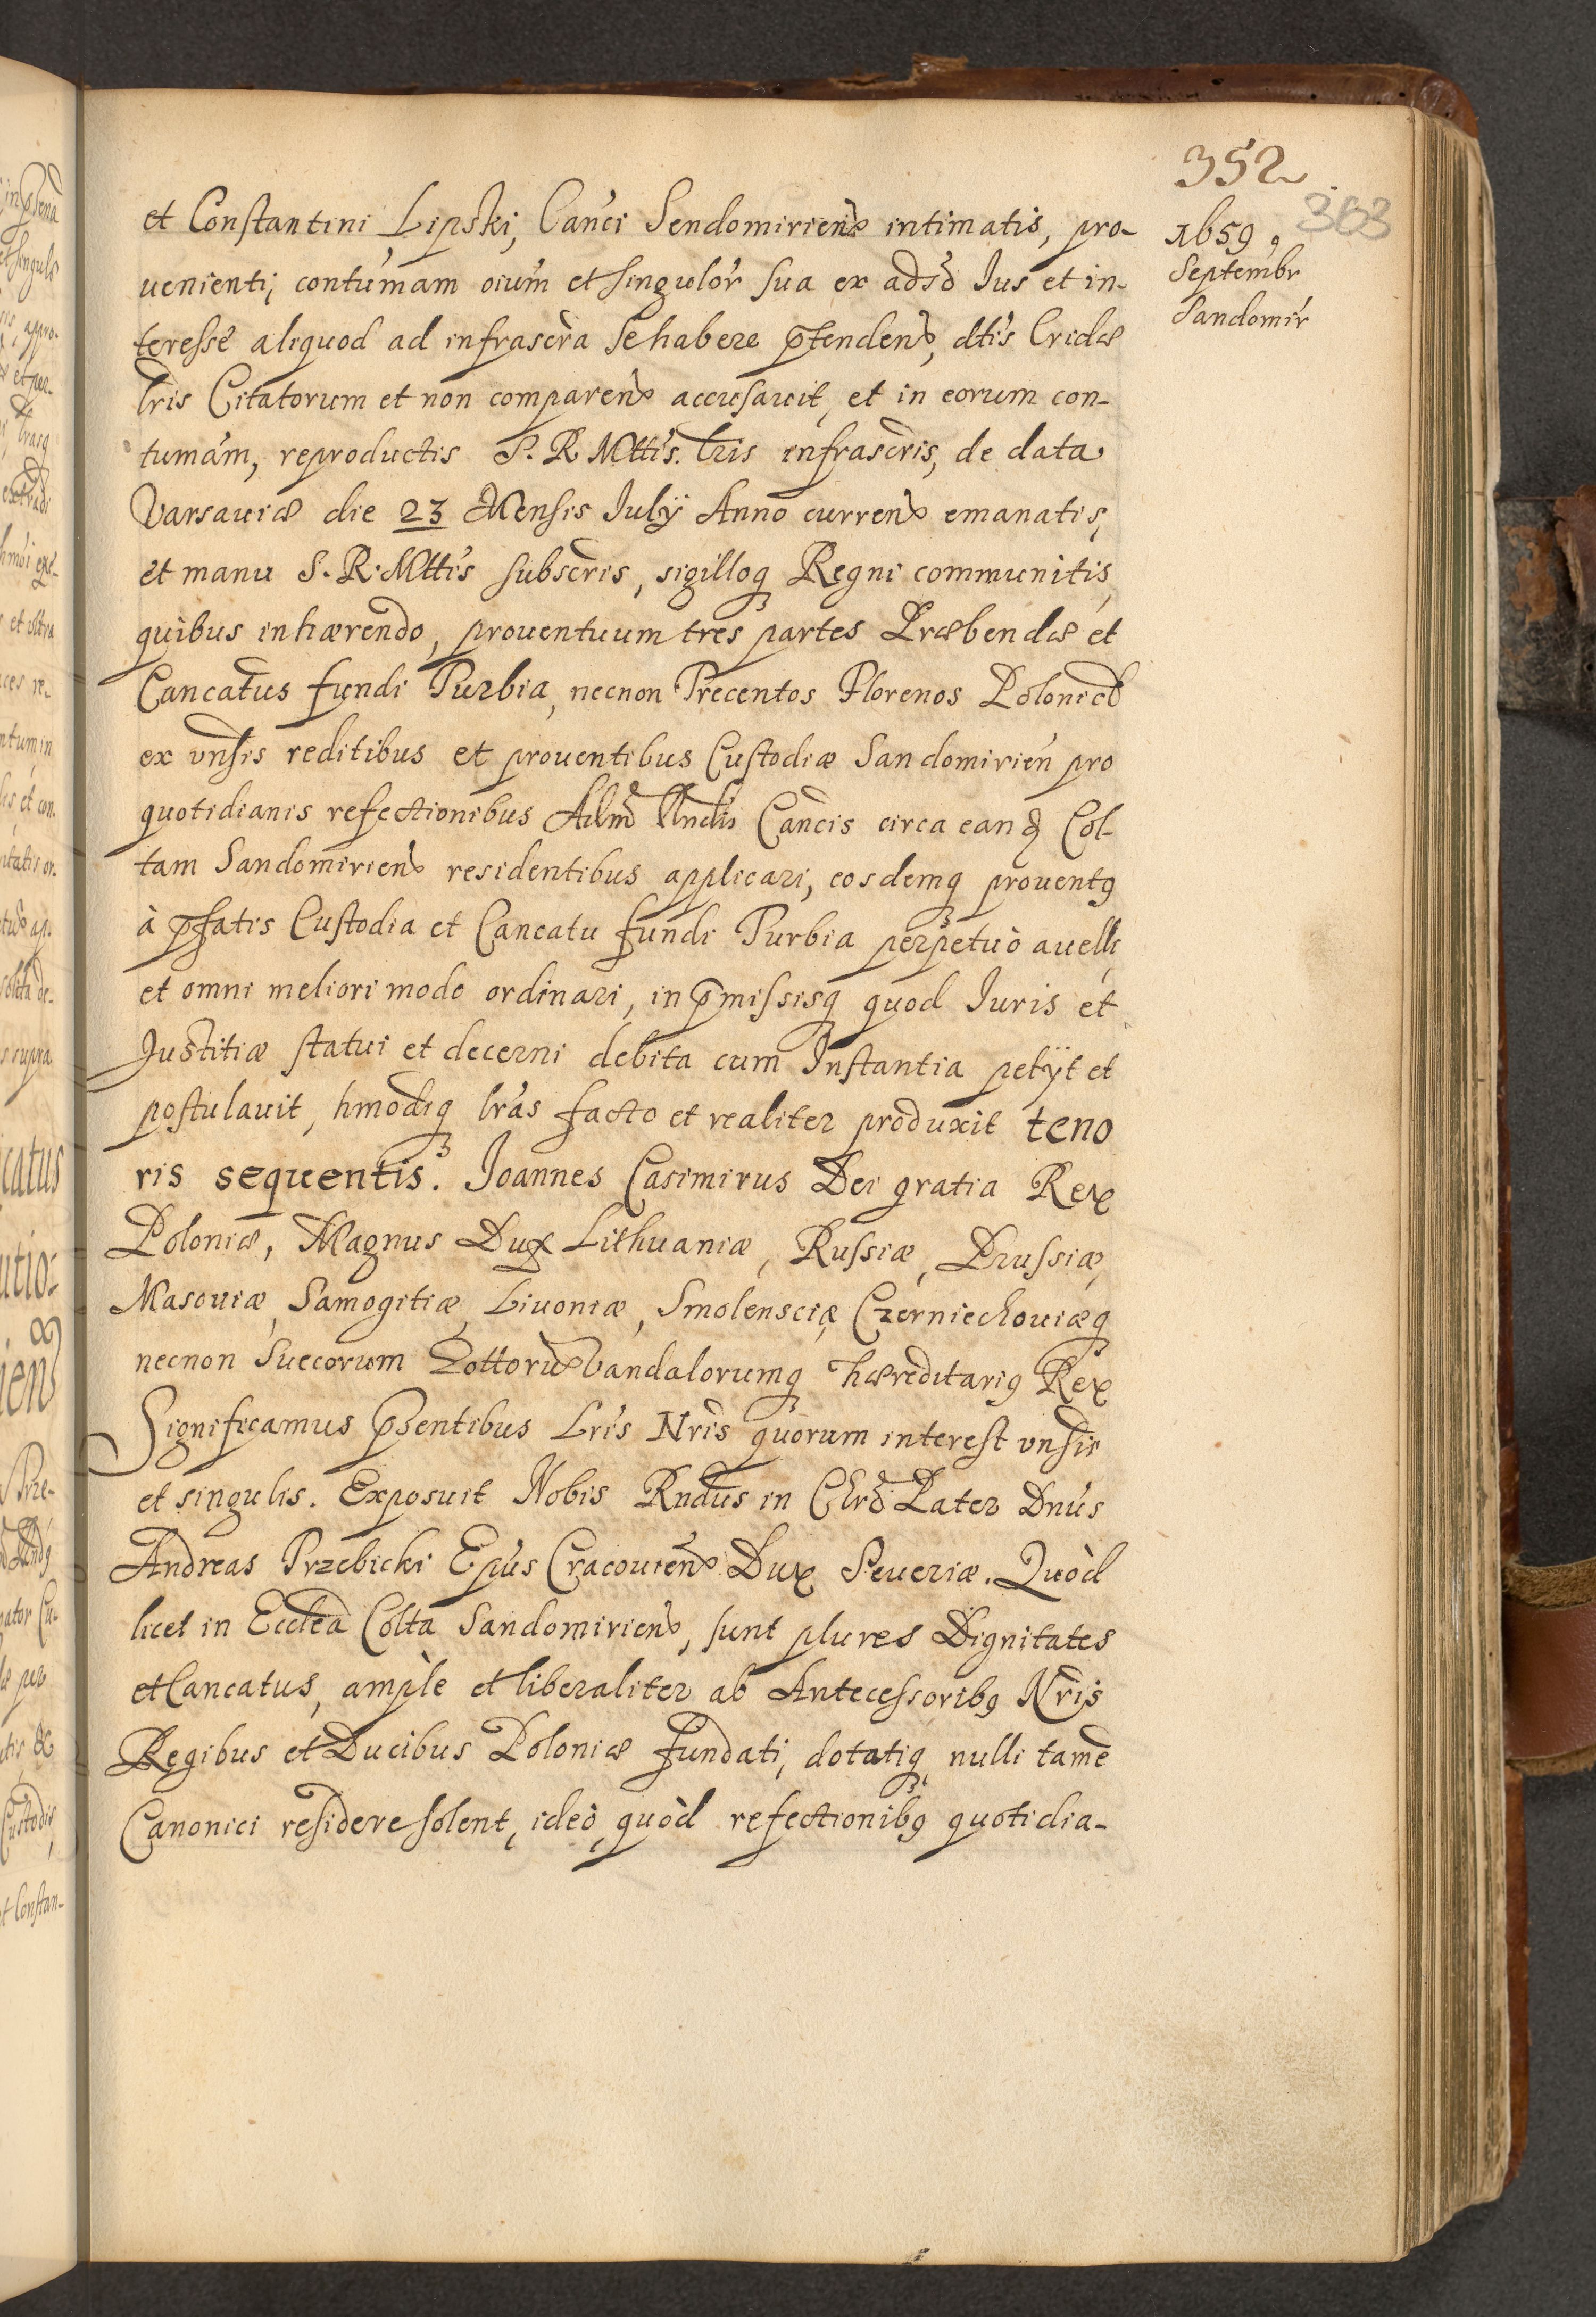 352
363
1659
Septembr
Sandomir
et Constantini Lipski, Canci Sendomirien intimatis, pro-
uenienti; contumam oium et singulor sua ex adso Ius et in-
teresse aliquod ad infrascra se habere ptenden, dtis Cridæ
lris Citatorum et non comparen accusauit, et in eorum con-
tumam, reproductis S. R. Mttis. lris infrascris, de data
Varsauiæ die 23 Mensis Iulÿ Anno curren emanatis,
et manu S. R. Mttis subscris, sigilloq Regni communitis,
quibus inhærendo, prouentuum tres partes Præbendæ et
Cancatus fundi Turbia, necnon Trecentos Florenos Polonic
ex vnsis reditibus et prouentibus Custodiæ Sandomirien pro
quotidianis refectionibus Adm Rndis Cancis circa eand Col-
tam Sandomirien residentibus applicari, eosdemq prouentq
à pfatis Custodia et Cancatu fundi Turbia perpetuò auelli
et omni meliori modo ordinari, in pmissisq quod Iuris et
Justitiæ statui et decerni debita cum Instantia petÿt et
postulauit, hmodiq lras facto et realiter produxit teno
ris sequentis. Joannes Casimirus Dei gratia Rex
Poloniæ, Magnus Dux Lithuaniæ, Russiæ, Prussiæ,
Masouiæ, Samogitiæ, Liuoniæ, Smolensciæ, Czerniechouiæq
necnon Suecorum Gottoru Vandalorumq hæreditariq Rex
Significamus psentibus Lris Nris quorum interest vnsis
et singulis. Exposuit Nobis Rndus in Chro Pater Dnus
Andreas Trzebicki Epus Cracouien Dux Seueriæ. Quòd
licet in Ecclea Colta Sandomirien, sunt plures Dignitates
et Cancatus, ample et liberaliter ab Antecessoribq Nris
Regibus et Ducibus Poloniæ fundati, dotatiq, nulli tame
Canonici residere solent, ideò, quòd refectionibq quotidia-